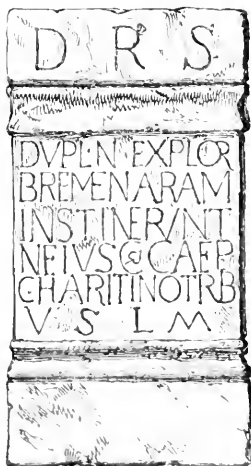 D R S
DVPL N EXPLOR
BREMEN ARAM
INSTINERVNT
N EIVS C CAEP
CHARITINO TRB
V S L M